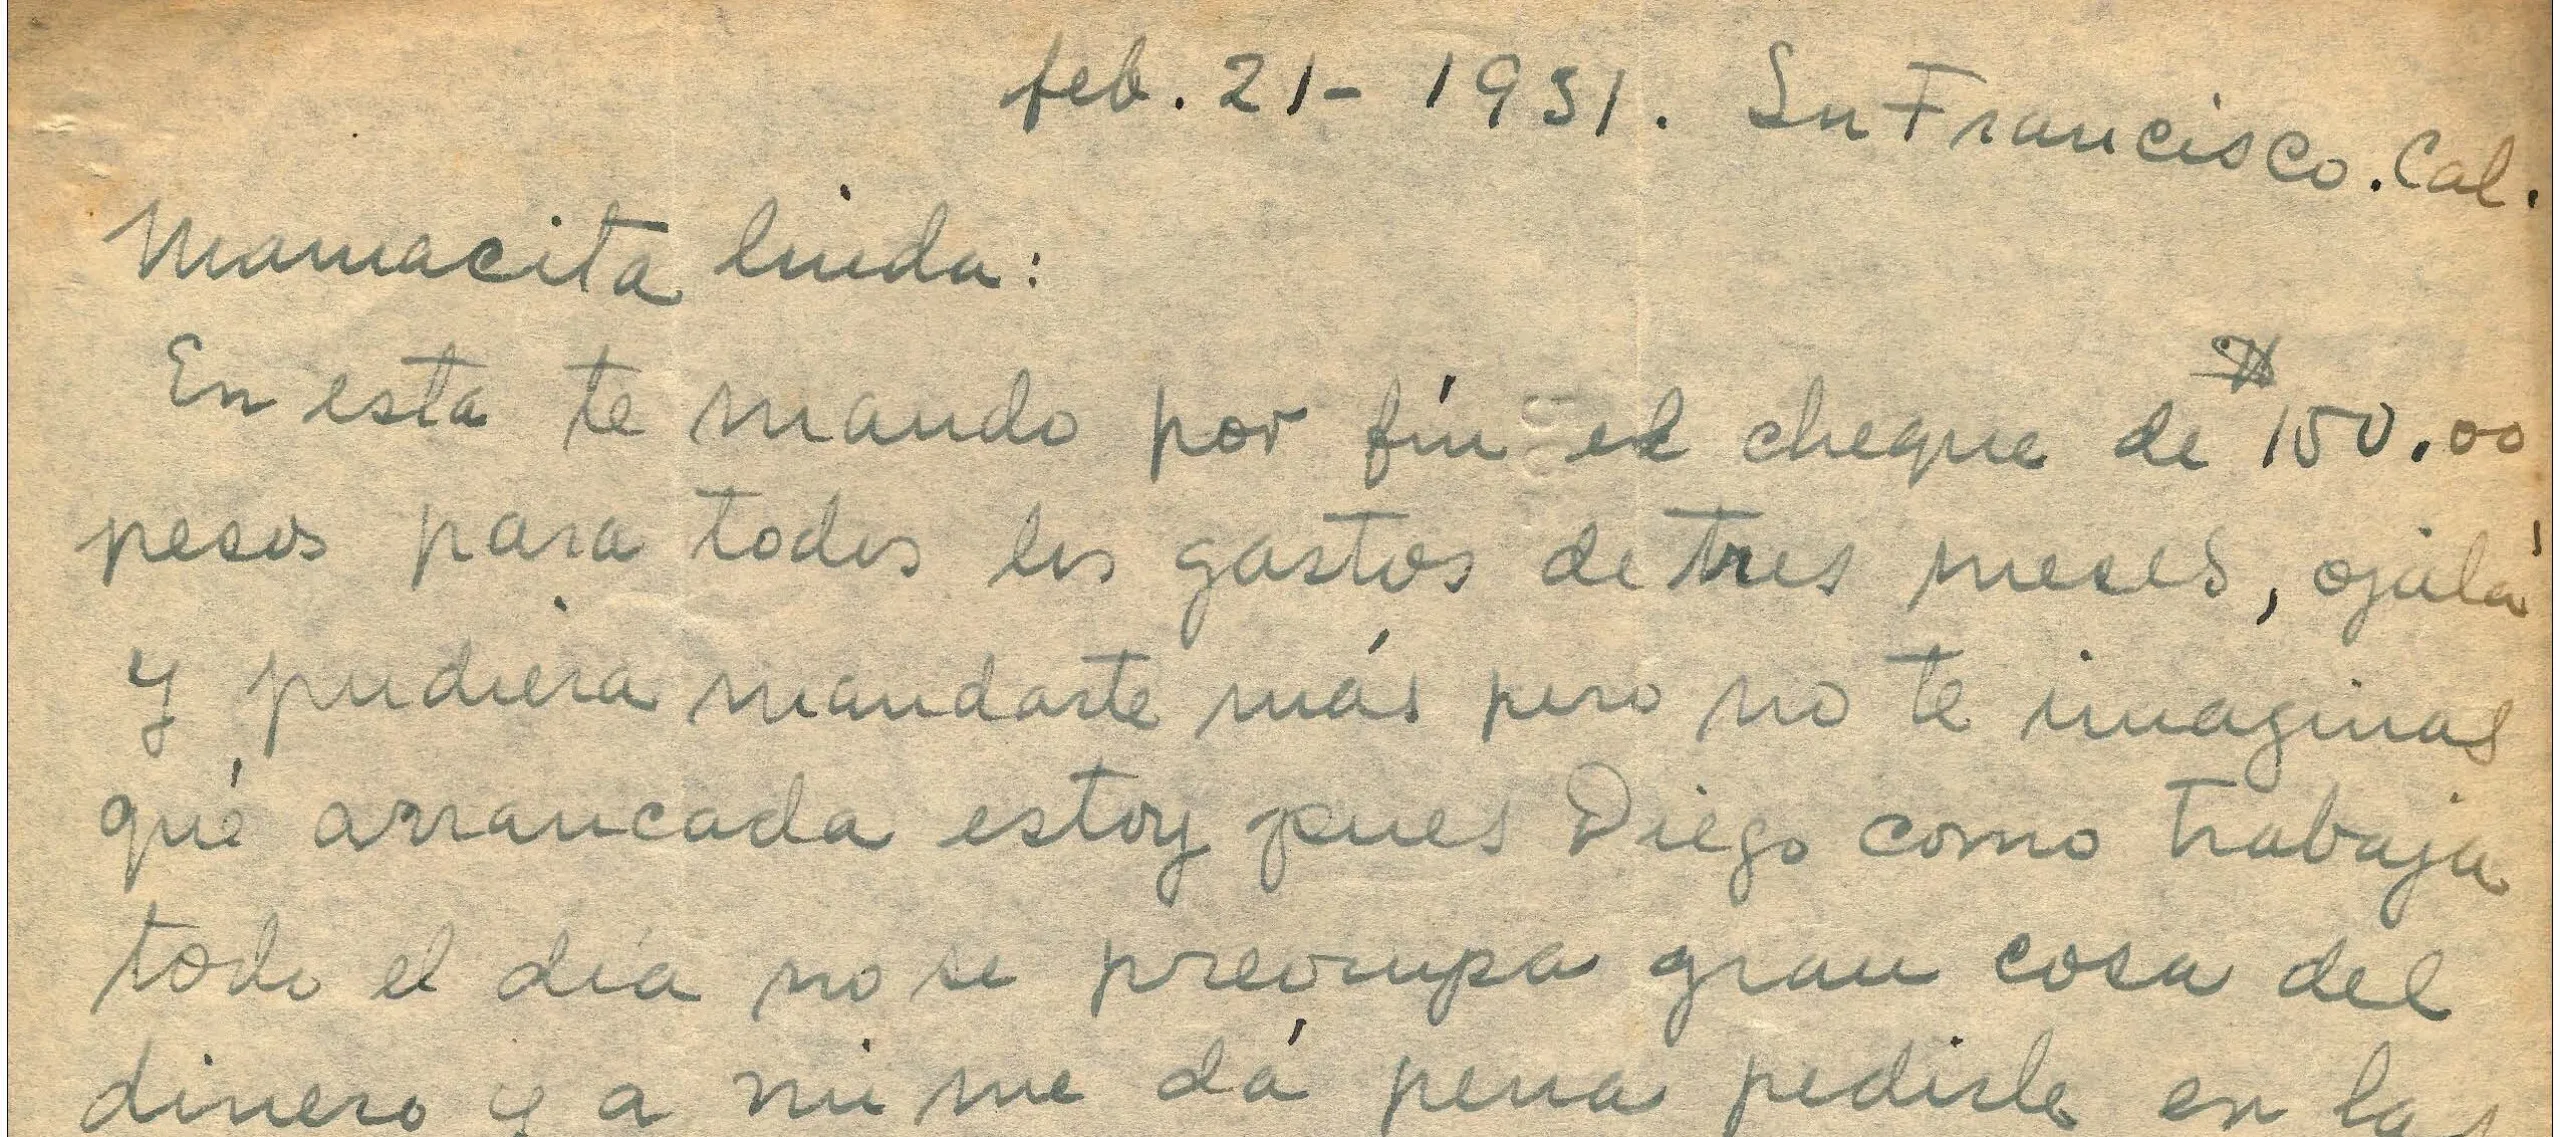 feb. 21- 1931. Sn Francisco. Cal.
Mamacita linda:
En esta te mando por fín el cheque de $150.00
pesos para todos los gastos de tres meses, ojalá
y pudiera mandarte más pero no te imaginas
qué arrancada estoy pues Diego como trabaja
todo el día no se preocupa gran cosa del
dinero y a mi me dá pena pedirle en la